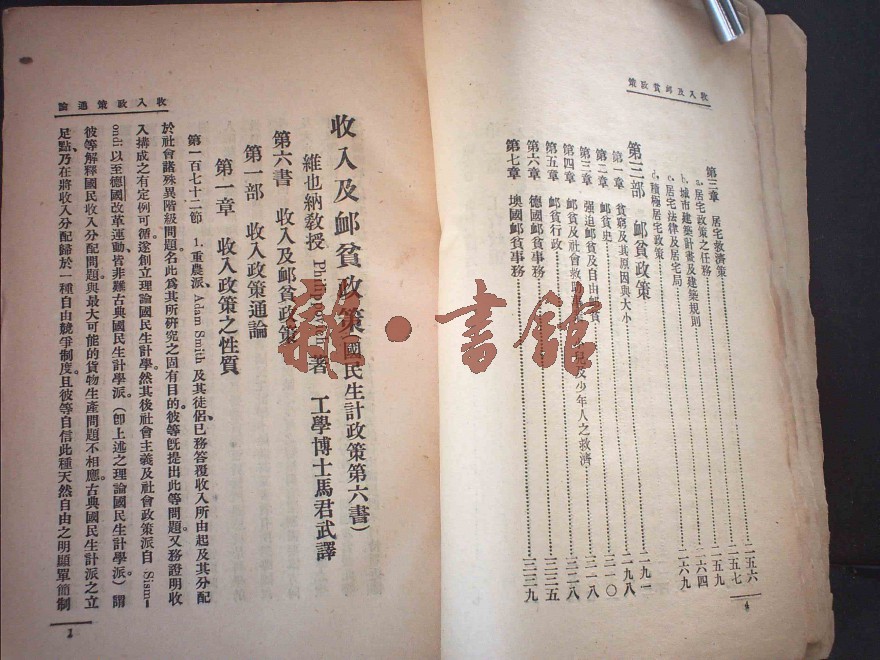 收入及卹貧政策
第三章　居宅救濟策……一五六
a. 居宅政策之任務……一五七
b. 城市建築計畫及建築規則……一五九
c. 居宅法律及居宅局……二六四
d. 積極居宅政策……二六九
第三部　卹貧政策
第一章　貧窮及其原因與大小……二九一
第二章　卹貧史……二九八
第三章　強迫卹貧及自由卹貧……三一〇
第四章　卹貧及社會救　少年人之救濟……三一八
第五章　卹貧行政……三二八
第六章　德國卹貧事務……三三五
第七章　墺國卹貧事務……三三九
4
收入政策通論
收入及卹貧政策(國民生計政策第六書)
維也納教授　著　工學博士馬君武譯
第六書　收入及卹貧政策
第一部　收入政策通論
第一章　收入政策之性質
第一百七十二節　1. 重農派、Adam Smith 及其徒侶、已務答覆收入所由起及其分配
於社會諸殊異階級問題。名此爲其所硏究之固有目的。彼等旣提出此等問題。又務證明收
入搆成之有定例可循。遂創立理論國民生計學。然其後社會主義及社會政策派自 Sism-
ondi 以至德國改革運動、皆非難古典國民生計學派。(卽上述之理論國民生計學派)謂
彼等解釋國民收入分配問題。與最大可能的貨物生產問題不相應。古典國民生計派之立
足點、乃在將收入分配歸於一種自由競爭制度。且彼等自信此種天然自由之明顯單簡制
1
雜·書館